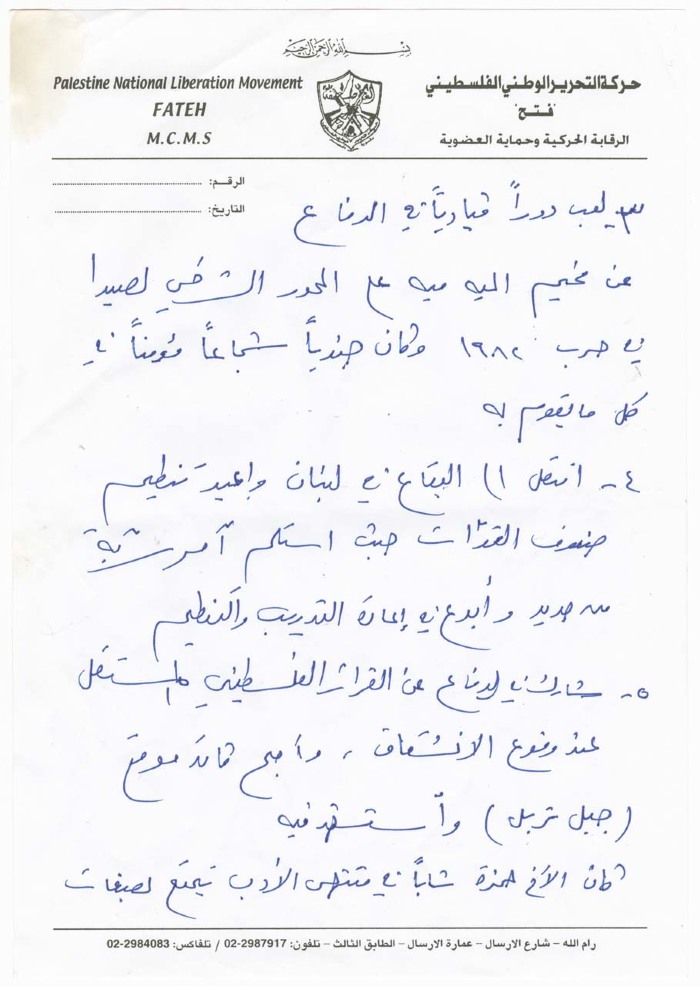 بسم الله الرحمن الرحيم
Palestine National Liberation Movement
FATEH
M.C.M.S
حركة التحرير الوطني الفلسطيني
"فتح"
الرقابة الحركية وحماية العضوية
الرقم:
التاريخ:
لعب دوراً قيادياً في الدفاع
عن مخيم الميه ميه على المحور الشرقي لصيدا
في حرب ١٩٨٢ وكان جندياً شجاعاً مؤمناً في
كل ما يقوم به
٤- انتقل الى البقاع في لبنان واعيد تنظيم
صفوف القوات حيث استلم آمر سرية
من جديد وأبدع في إعادة التدريب والتنظيم
٥- شارك في الدفاع عن القرار الفلسطيني المستقل
عند وقوع الانشقاق، وأصبح قائد موقع
(جبل تربل) وأستشهد فيه
كان الأخ حمزة شاباً في منتهى الأدب يتمتع بصفات
رام الله – شارع الارسال – عمارة الارسال – الطابق الثالث – تلفون: 2987917-02 / تلفاكس: 2984083-02